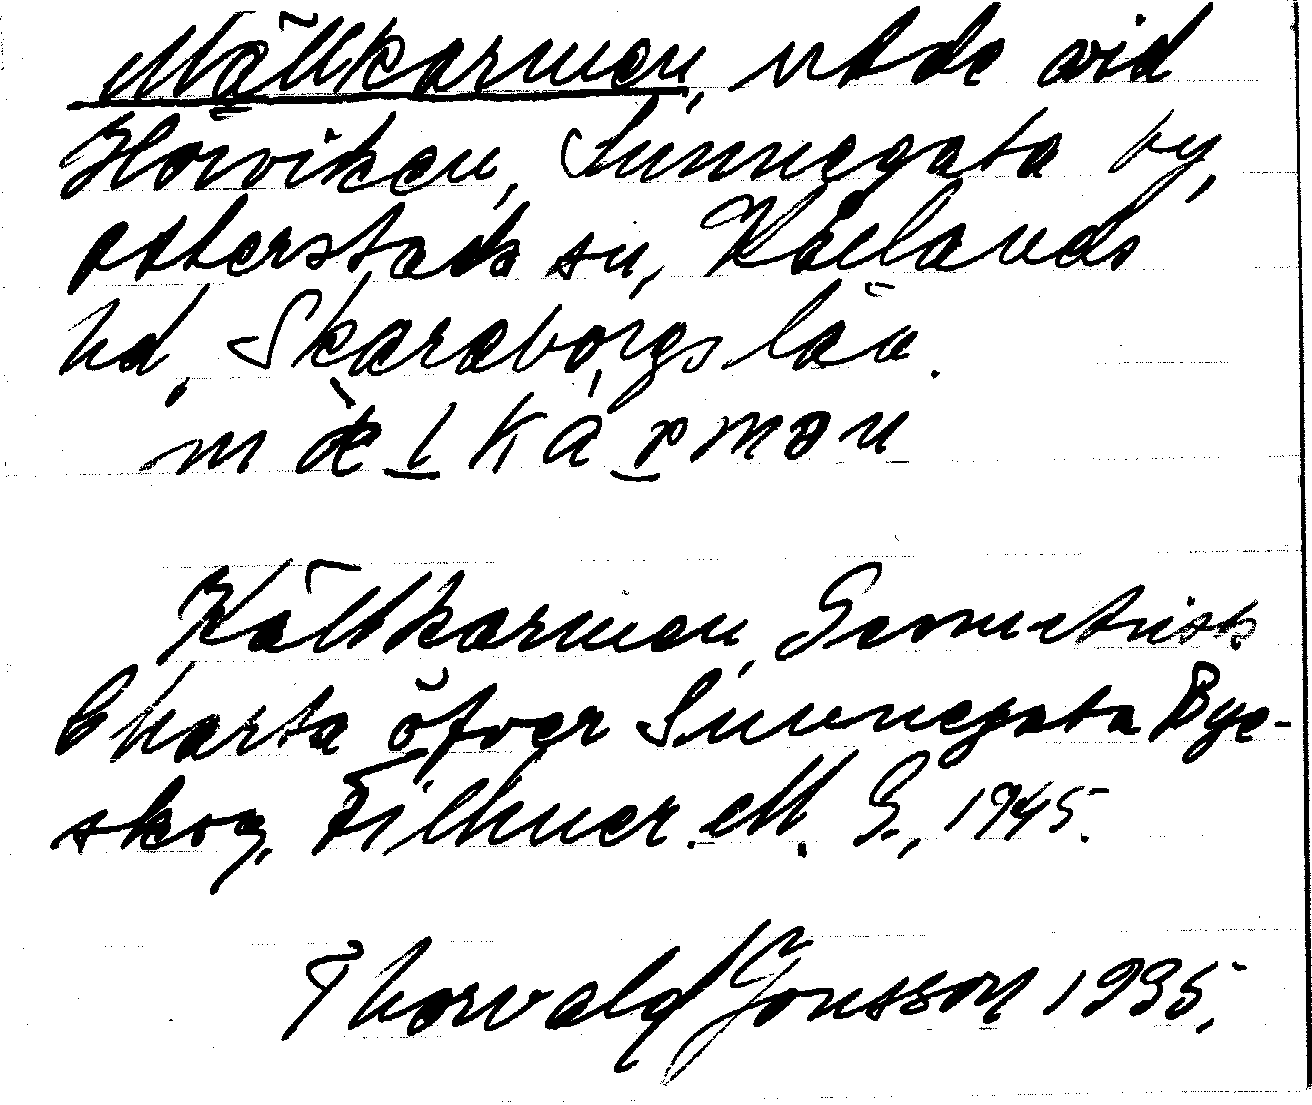 Mällkarmen, utde vid
Hörviken, Sunnegata by,
Otterstads sn, Kållands
hd, Skaraborgs län.
mæ̀lkármən
Källkarmen, Geometrisk
Charta öfver Sunnegata Bye-
skog, Filkner. M. G., 1945.
Thorvald Jonsson 1935.